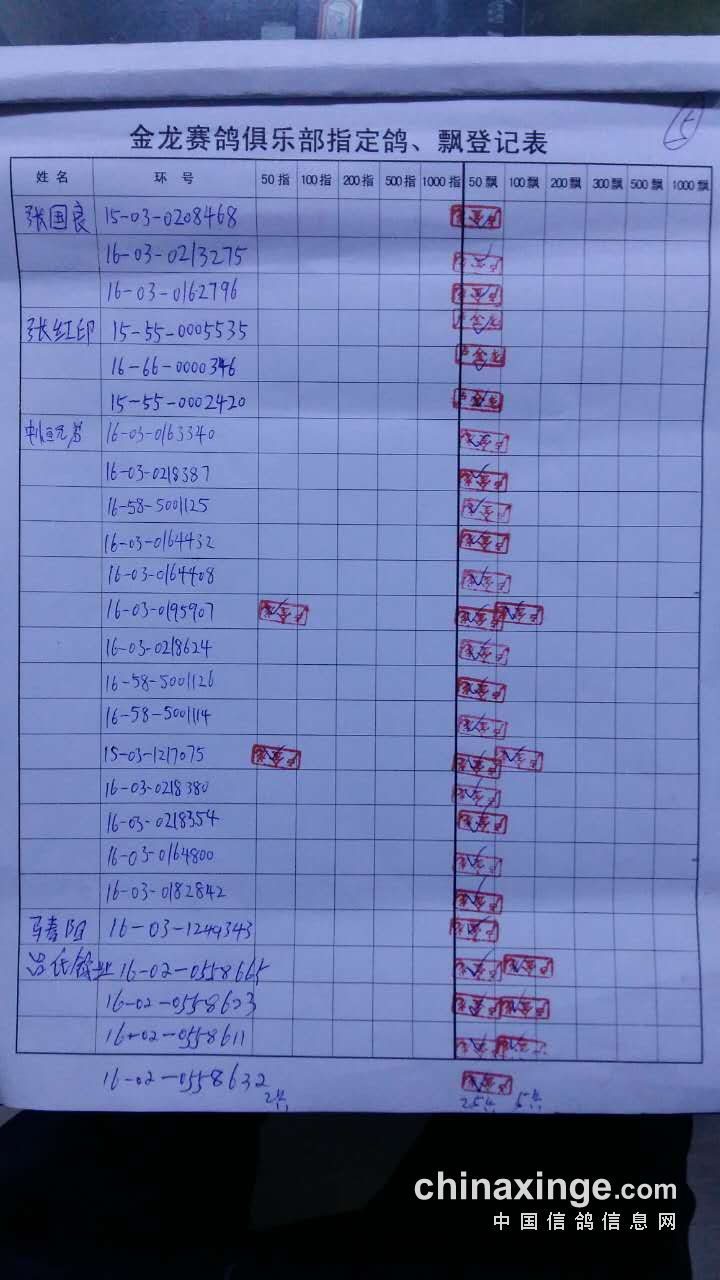 5
金龙赛鸽俱乐部指定鸽、飘登记表
姓名 环号 50指 100指 200指 500指 1000指 50飘 100飘 200飘 300飘 500飘 1000飘
张国良 15-03-0208468
16-03-0213275
16-03-0162796
张红印 15-55-0005535
16-66-0000346
15-55-0002420
兄弟 16-03-0163340
16-03-0218387
16-58-5001125
16-03-0164432
16-03-0164408
16-03-0195907
16-03-0218624
16-58-5001126
16-58-5001114
15-03-1217075
16-03-0218380
16-03-0218354
16-03-0164800
16-03-0182842
马春阳 16-03-1249343
吕氏铃业 16-02-0558665
16-02-0558623
16-02-0558611
16-02-0558632
2 25 5
chinaxinge.com
中国信鸽信息网